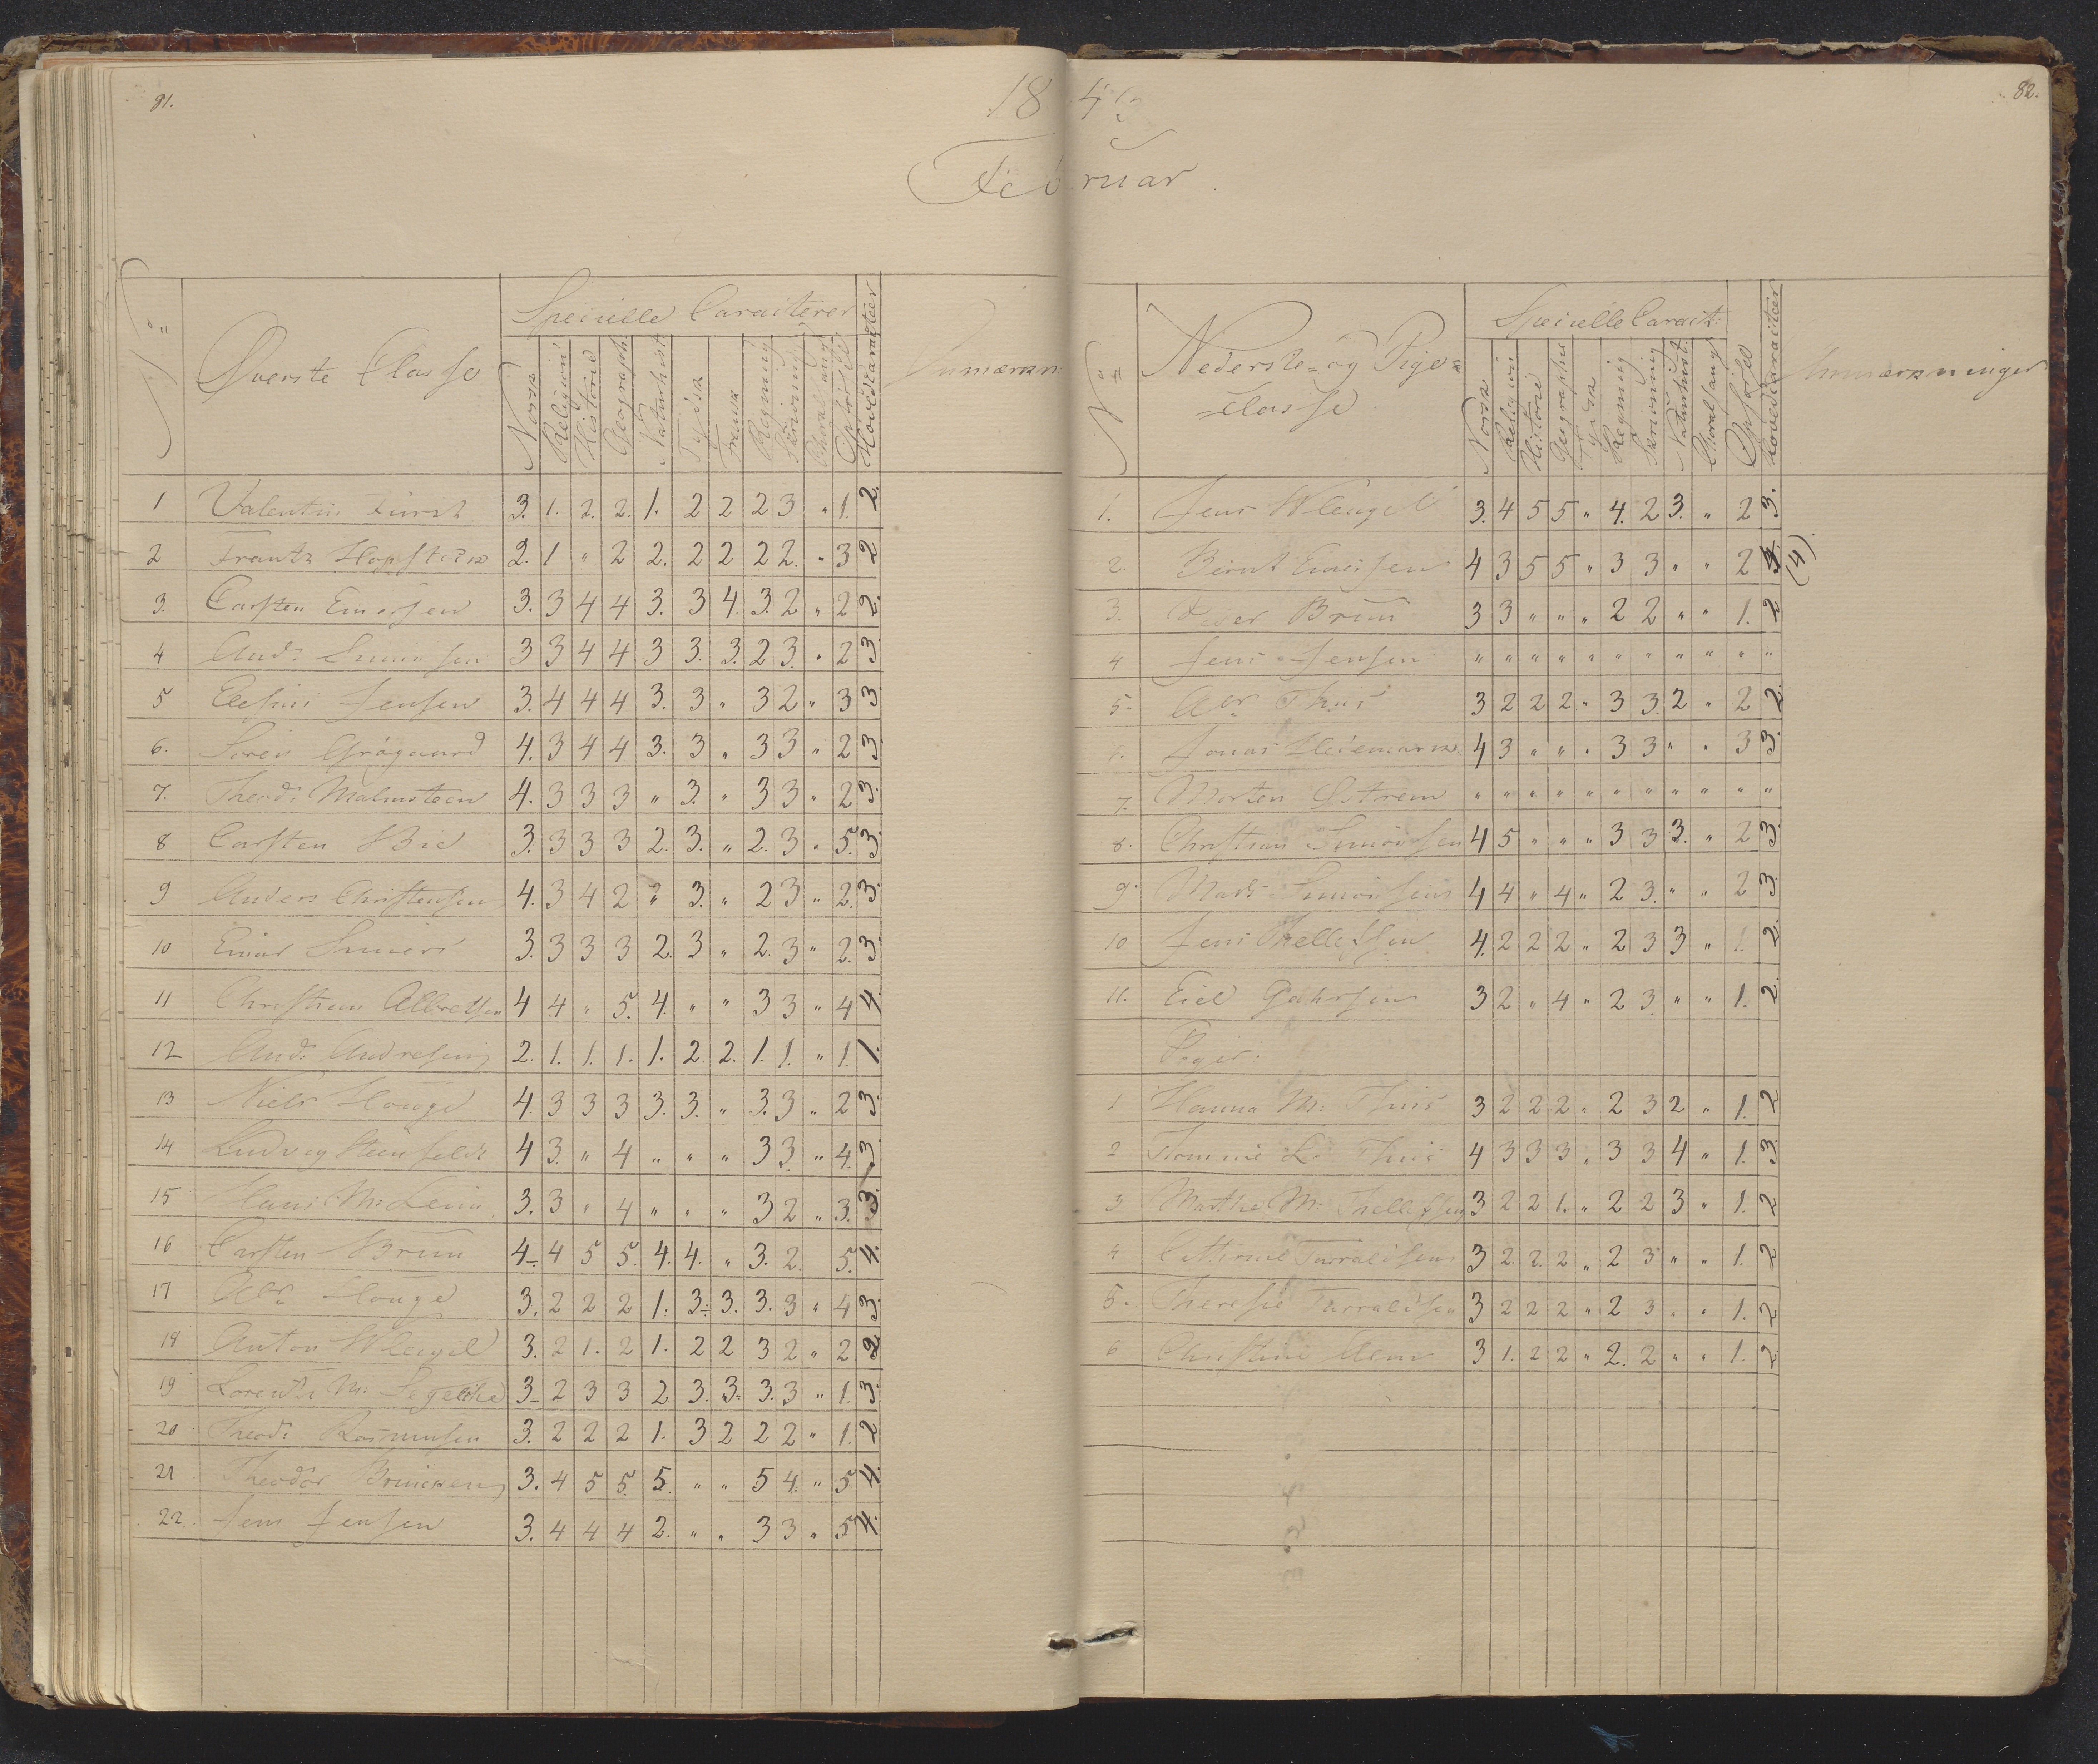 81.
18
Februar.
No
Øverste Classe
Specielle Caracterer
Norsk
Religion
Historie
Geograph.
Naturhist.
Tydsk
Fransk
Regning
Skrivning
Choralsang
Opførsel
Hovedkarakter
1 Valentin Fürst 3. 1. 2. 2. 1. 2 2 2 3 " 1. 2.
2 Frantz Hopstock 2. 1 " 2 2. 2 2 2 2. " 3 2
3. Carsten 3. 3 4 4 3. 3 4. 3. 2 " 2 2.
4 And: Simonsen 3 3 4 4 3 3. 3. 2 3. " 2 3.
5 Jensen 3. 4 4 4 3. 3 " 3 2 " 3 3
6. Søren Grøgaard 4. 3 4 4 3. 3 " 3 3 " 2 3.
7. Theod: Malmsteen 4. 3 3 3 " 3. " 3 3 " 2 3.
8 Carsten Bie 3. 3 3 3 2. 3. " 2. 3 " 5. 3.
9 Anders Christensen 4. 3 4 2 " 3. " 2 3 " 2. 3.
10 Einar 3. 3 3 3 2. 3 " 2. 3 " 2. 3
11 Christian Albretsen 4 4 " 5. 4. " " 3 3 " 4 4.
12 And: Andresen 2. 1. 1. 1. 1. 2. 2. 1. 1. " 1. 1.
13 Niels Houge 4. 3 3 3 3. 3. " 3. 3 " 2 3.
14 Ludvig Steenfeldt 4 3. " 4 " " " 3 3. " 4. 3.
15 Hans M: 3. 3 " 4 " " " 3 2 " 3. 3.
16 Carsten Bruun 4. 4 5 5. 4. 4. " 3. 2. 5. 4.
17 Houge 3. 2 2 2 1. 3. 3. 3. 3 " 4 3.
18 Anton Wleugel 3. 2 1. 2 1. 2 2 3 2 " 2 2
19 Lorentz M: Segelcke 3 2 3 3 2. 3. 3. 3. 3 " 1. 3.
20 Theod: Rasmusen 3. 2 2 2 1. 3 2 2 2 " 1. 2
21. Theodor 3. 4 5 5. 5. " " 5 4. " 5. 4.
22. Jens Jensen 3. 4 4 4 2. " " 3 3 " 5 4.
82.
No
Nederste- og Pige-
Classe.
Specielle Caract:
Norsk
Religion
Historie
Geographie
Tydsk
Regning
Skrivning
Naturhist.
Choralsang
Opførsel
Hovedcaracter
Anmærkninger
1. Jens Wleugel 3. 4 5 5 " 4. 2 3. " 2 3.
2. Bernt 4 3 5 5 " 3 3 " " 2 4. (4)
3. Bruun 3 3 " " " 2 2 " " 1. 2
4 Jens Jensen " " " " " " " " " " "
5. Thiis 3 2 2 2 " 3 3. 2 " 2 2.
Jonas 4 3 " " " 3 3 " " 3 3.
7. Morten Østrem " " " " " " " " " " "
8. Christian Simonsen 4 5 " " " 3 3 3. " 2 3.
9. Mads Simonsen 4 4 " 4 " 2 3. " " 2 3.
10 Jens Thellefsen 4. 2 2 2 " 2 3 3 " 1. 2.
11. 3 2 " 4 " 2 3 " " 1. 2.
Piger.
1 Hanna M: Thiis 3 2 2 2 " 2 3 2 " 1. 2
2 Thiis 4 3 3 3 " 3 3 4 " 1. 3.
3 Marthe M: Thellefsen 3 2 2 1. " 2 2 3 " 1. 2
4 Cathrine 3 2 2. 2 " 2 3 " " 1. 2
5. Therese 3 2 2 2 " 2 3 " " 1. 2
6 Christine 3 1. 2 2 " 2. 2 " " 1. 2.